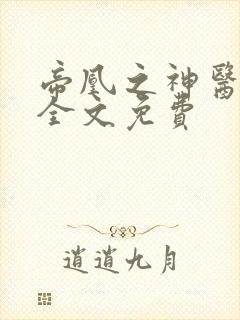 帝凰之神醫
全文免費
逍逍九月